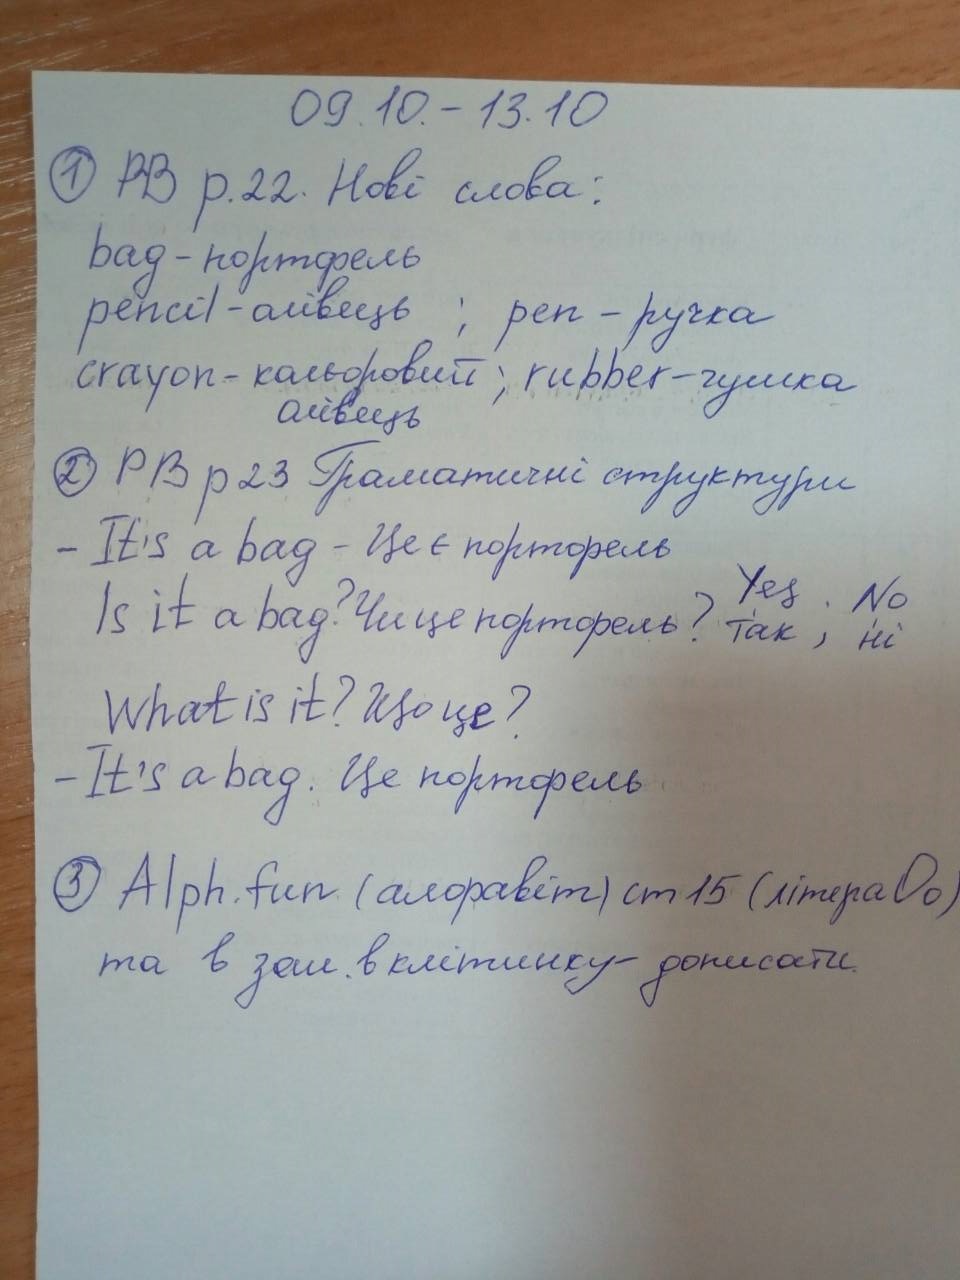 09.10.-13.10
① PB p.22. Нові слова:
bag - портфель
pencil - олівець ; pen - ручка
crayon - кольоровий ; rubber - гумка
олівець
② PB p 23 Граматичні структури
- It's a bag - Це є портфель
Is it a bag? Чи це портфель? Yes так, No ні
What is it? Що це?
- It's a bag. Це портфель
③ Alph. fun (алфавіт) ст 15 (літера Oo)
та в зош. в клітинку - дописати.